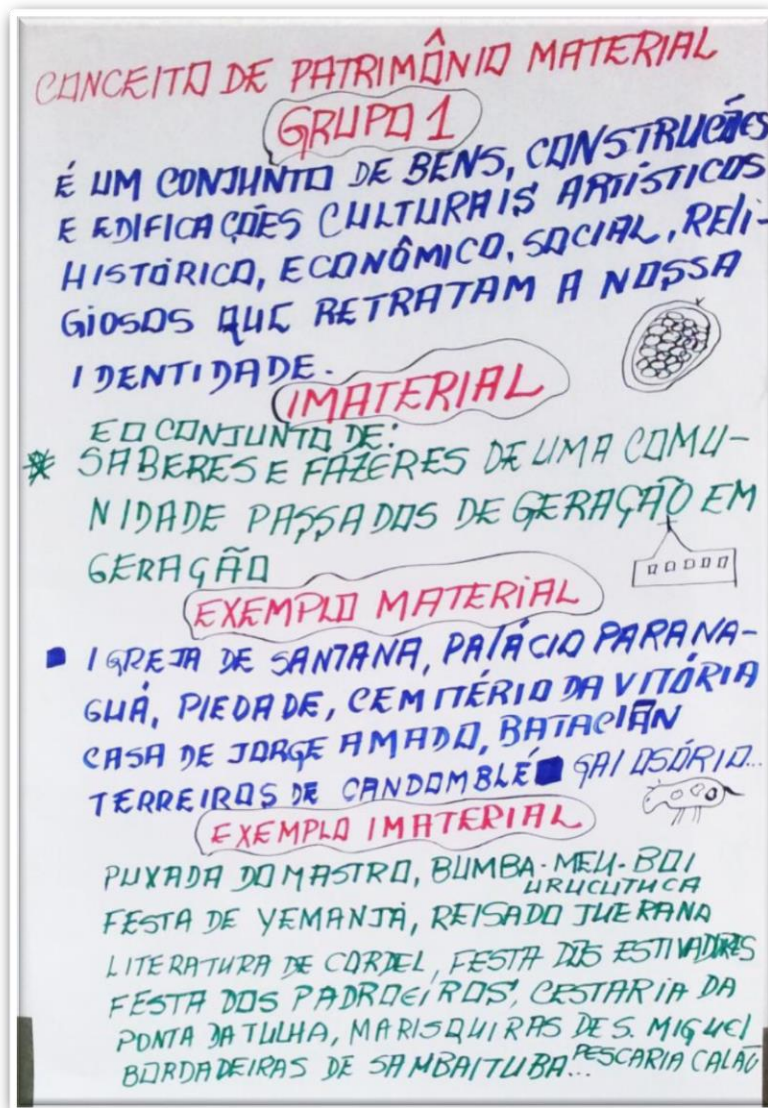 CONCEITO DE PATRIMÔNIO MATERIAL
GRUPO 1
É UM CONJUNTO DE BENS, CONSTRUÇÕES
E EDIFICAÇÕES CULTURAIS ARTÍSTICOS
HISTÓRICO, ECONÔMICO, SOCIAL, RELI-
GIOSOS QUE RETRATAM A NOSSA
IDENTIDADE.
IMATERIAL
E O CONJUNTO DE:
* SABERES E FAZERES DE UMA COMU-
NIDADE PASSADOS DE GERAÇÃO EM
GERAÇÃO
EXEMPLO MATERIAL
IGREJA DE SANTANA, PALÁCIO PARANA-
GUÁ, PIEDADE, CEMITÉRIO DA VITÓRIA
CASA DE JORGE AMADO, BATACLÃN
TERREIROS DE CANDOMBLÉ GAL OSÓRIO...
EXEMPLO IMATERIAL
PUXADA DO MASTRO, BUMBA-MEU-BOI
URUCUTUCA
FESTA DE YEMANJÁ, REISADO JUERANA
LITERATURA DE CORDEL, FESTA DOS ESTIVADORES
FESTA DOS PADROEIROS, CESTARIA DA
PONTA DA TULHA, MARISQUIRAS DE S. MIGUEL
BORDADEIRAS DE SAMBAITUBA... PESCARIA CALÃO